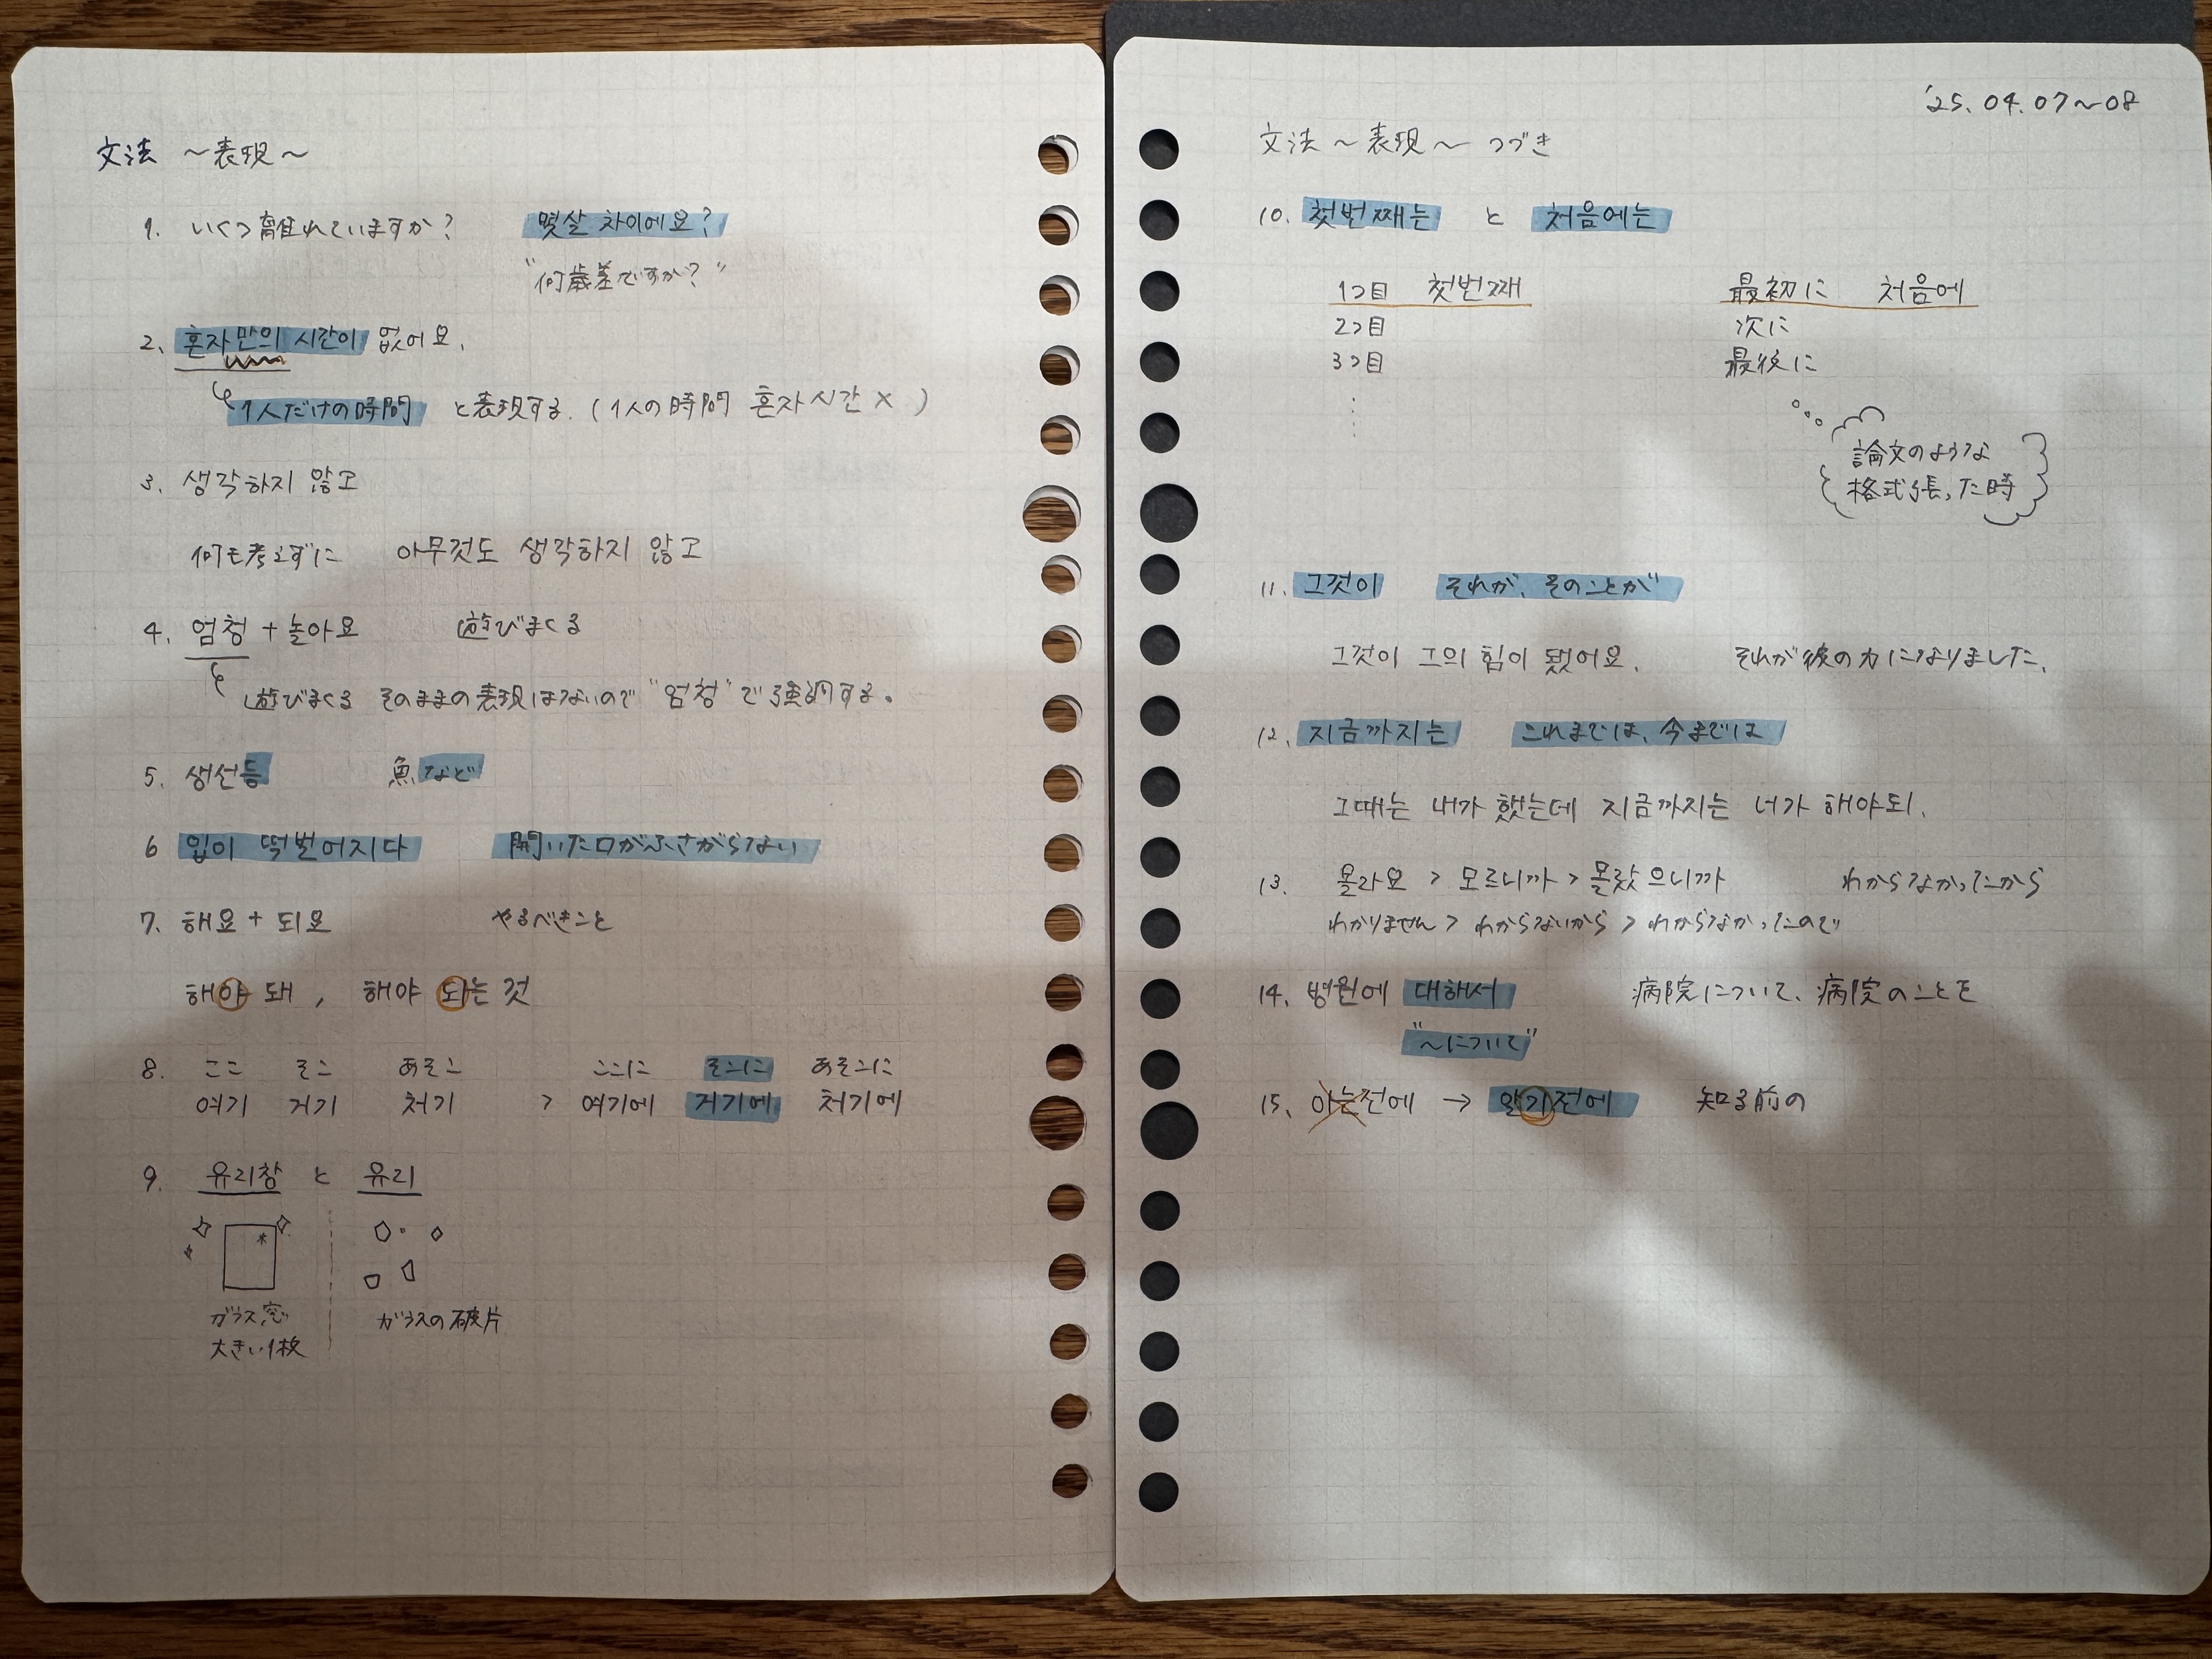 文法 〜表現〜
1. いくつ離れていますか? 몇살 차이에요?
"何歳差ですか?"
2. 혼자만의 시간이 없어요.
1人だけの時間 と表現する.(1人の時間 혼자시간 × )
3. 생각하지 않고
何も考えずに 아무것도 생각하지 않고
4. 엄청 + 놀아요 遊びまくる
遊びまくる そのままの表現はないので"엄청"で強調する。
5. 생선등 魚など
6 입이 떡벌어지다 開いた口がふさがらない
7. 해요 + 되요 やるべきこと
해야 돼 , 해야 되는 것
8. ここ そこ あそこ ここに そこに あそこに
여기 거기 처기 > 여기에 거기에 처기에
9. 유리창 と 유리
ガラス窓 ガラスの破片
大きい1枚
'25.04.07〜08
文法〜表現〜 つづき
10. 첫번째는 と 처음에는
1つ目 첫번째 最初に 처음에
2つ目 次に
3つ目 最後に
論文のような
格式張った時
11. 그것이 それが、そのことが
그것이 그의 힘이 됐어요. それが彼の力になりました.
12. 지금까지는 これまでは、今までは
그때는 내가 했는데 지금까지는 너가 해야되.
13. 몰라요 > 모르니까 > 몰랐으니까 わからなかったから
わかりません > わからないから > わからなかったので
14. 병원에 대해서 病院について、病院のことを
"〜について"
15. 아는전에 → 알기전에 知る前の